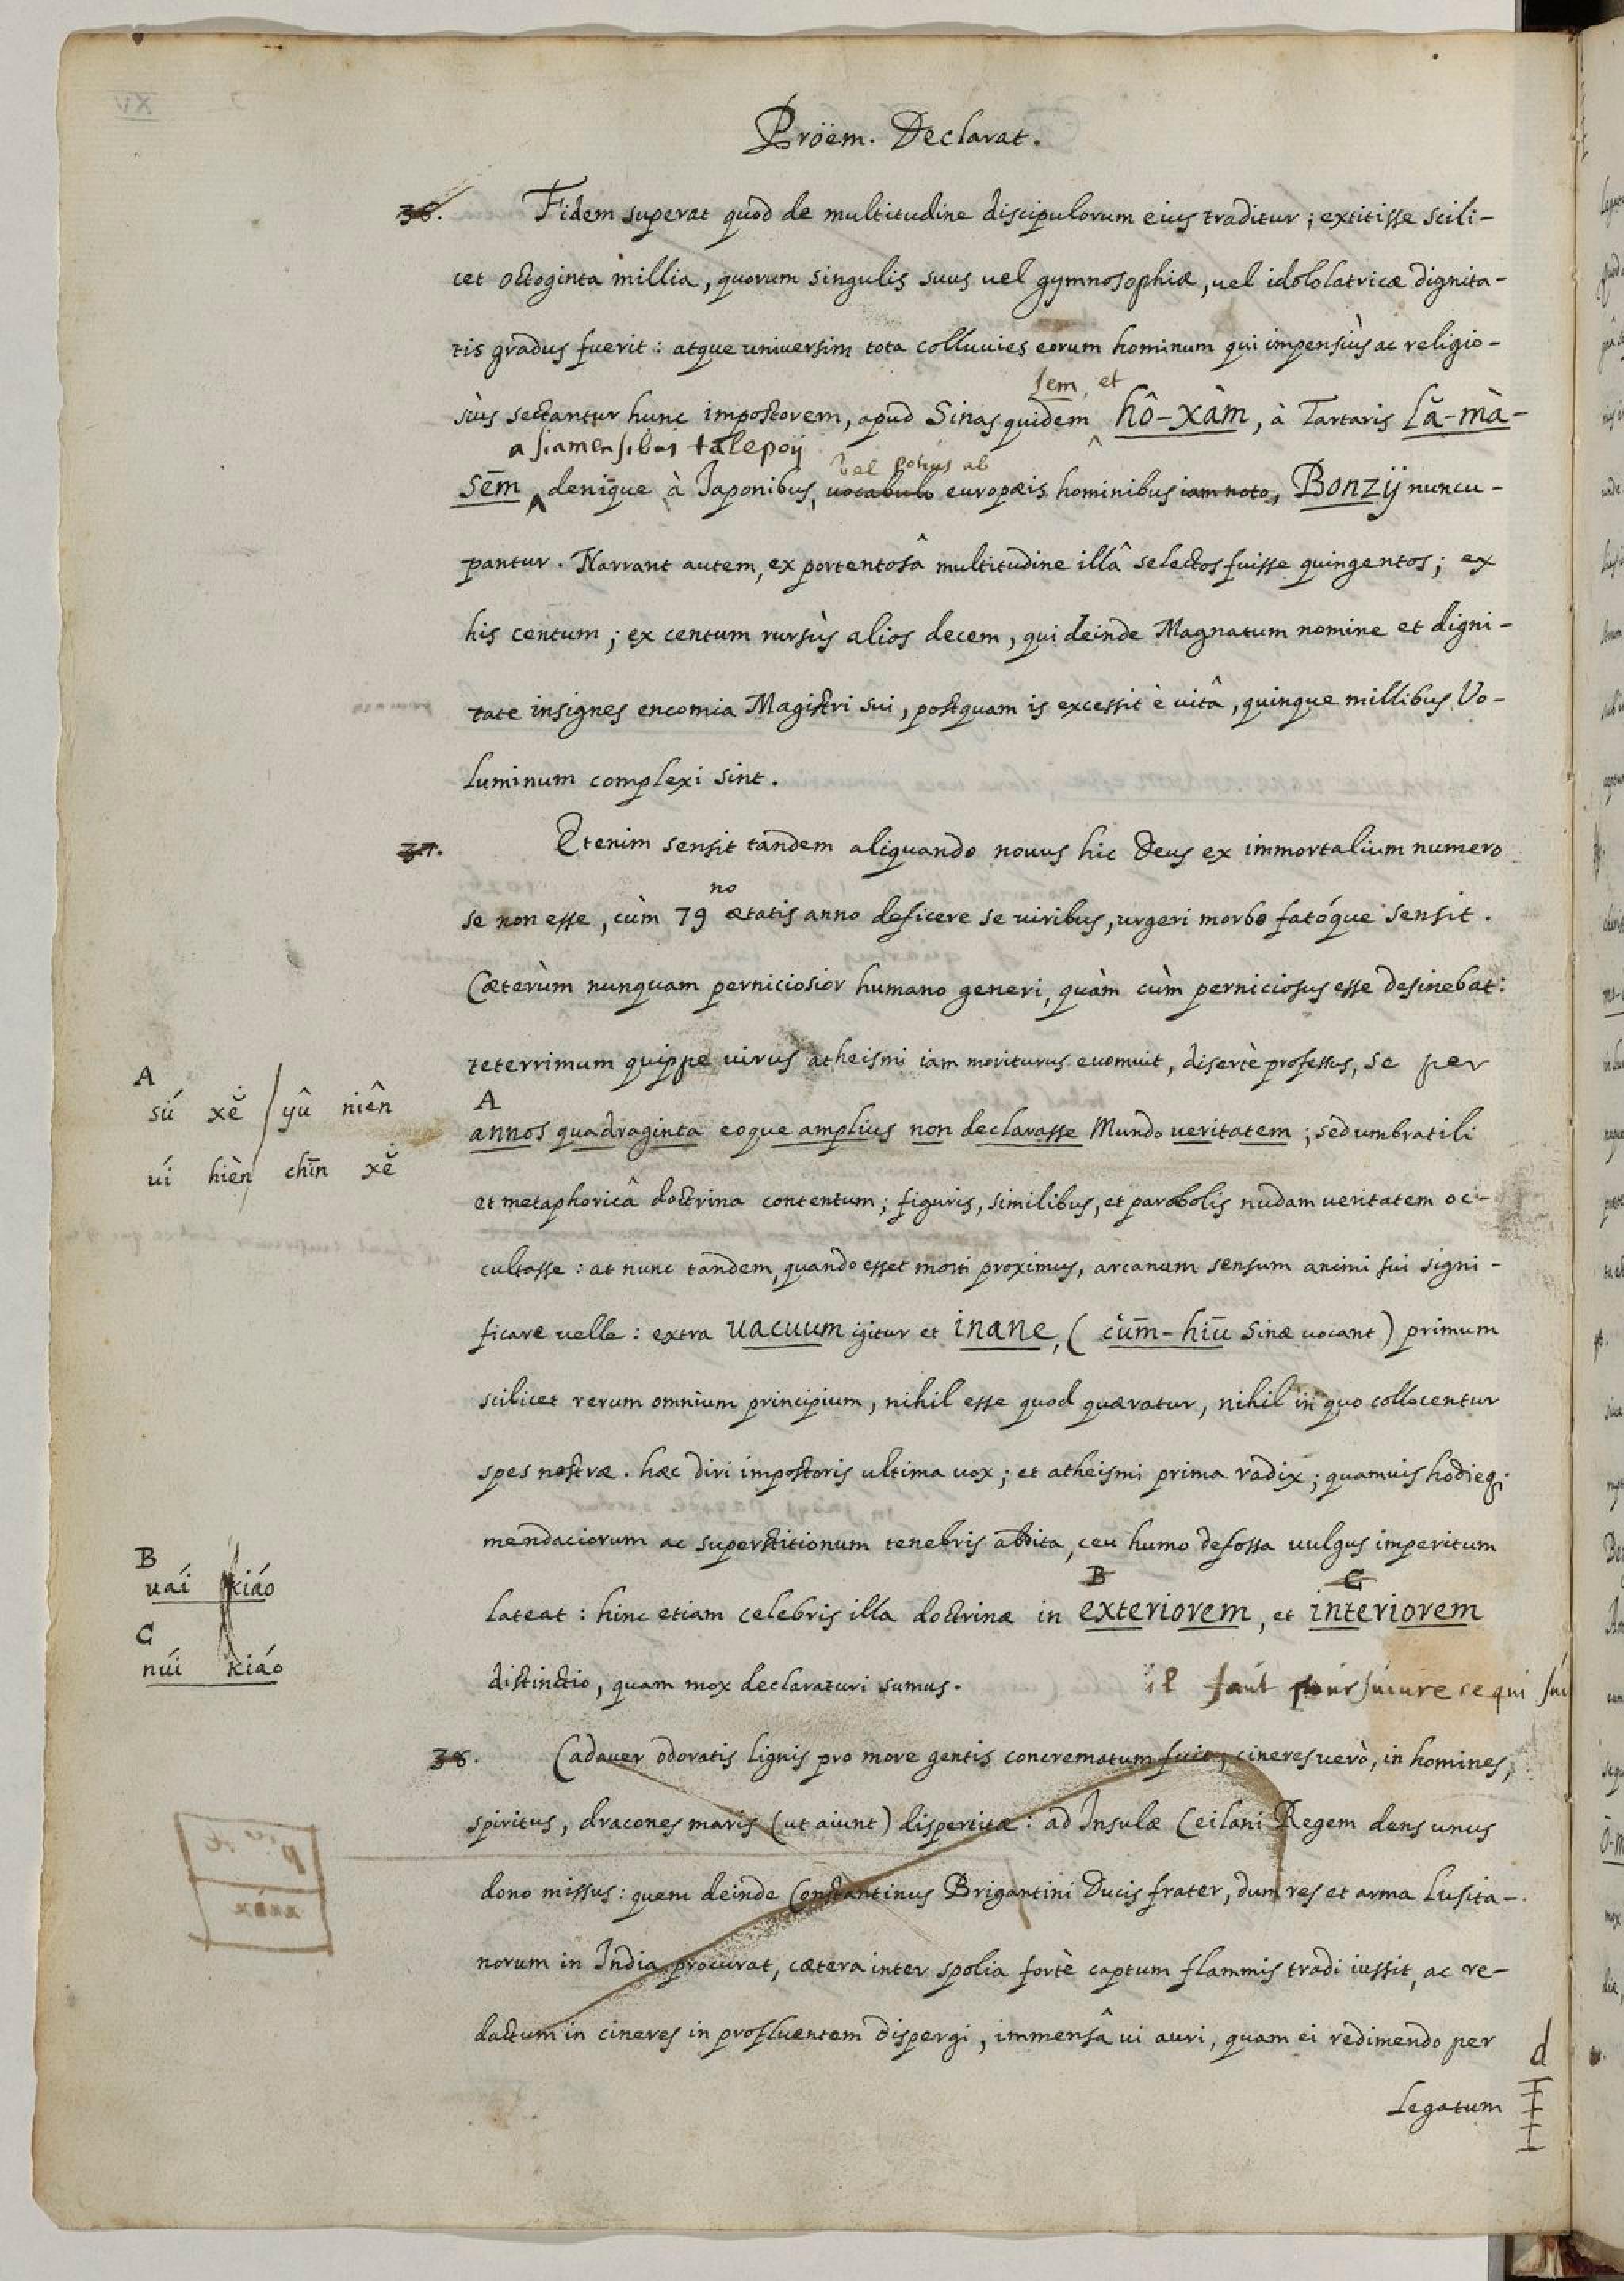 Pröem. Declarat.
36. Fidem superat quod de multitudine discipulorum eius traditur; extitisse scili-
cet octoginta millia, quorum singulis suus uel gymnosophiæ, uel idololatricæ dignita-
tis gradus fuerit: atque uniuersim tota colluuies eorum hominum qui impensiùs ac religio-
sem, et
siùs sectantur hunc impostorem, apud Sinas quidem hô-xàm, à Tartaris Lă-mà-
a siamensibus talepoij
vel potius ab
sēm denique à Japonibus, uocabulo europæis hominibus iam noto, Bonzij nuncu-
pantur. Narrant autem, ex portentosâ multitudine illâ selectos fuisse quingentos; ex
his centum; ex centum rursùs alios decem, qui deinde Magnatum nomine et digni-
tate insignes encomia Magistri sui, postquam is excessit è uitâ, quinque millibus Vo-
luminum complexi sint.
37. Etenim sensit tandem aliquando nouus hic Deus ex immortalium numero
no
se non esse, cùm 79 ætatis anno deficere se uiribus, urgeri morbo fatóque sensit.
Cæterùm nunquam perniciosior humano generi, quàm cùm perniciosus esse desinebat:
teterrimum quippe uirus atheismi iam moriturus euomuit, disertè professus, se per
A
sú xĕ yû niên
uí hièn chīn xĕ
A
annos quadraginta eoque amplius non declarasse Mundo ueritatem; sed umbratili
et metaphoricâ doctrina contentum; figuris, similibus, et parabolis nudam ueritatem oc-
cultasse: at nunc tandem, quando esset morti proximus, arcanum sensum animi sui signi-
ficare uelle: extra uacuum igitur et inane, (cùm-hiū Sinæ uocant) primum
scilicet rerum omnium principium, nihil esse quod quæratur, nihil in quo collocentur
spes nostræ. hæc diri impostoris ultima uox; et atheismi prima radix; quamuis hodieq;
mendaciorum ac superstitionum tenebris abdita, ceu humo defossa uulgus imperitum
B
uái kiáo
C
núi kiáo
B C
lateat: hinc etiam celebris illa doctrinæ in exteriorem, et interiorem
distinctio, quam mox declaraturi sumus. il faut poursuiure ce qui sui
38. Cadauer odoratis lignis pro more gentis concrematum fuit; cineres uerò, in homines,
spiritus, dracones maris (ut aiunt) dispertitæ: ad Insulæ Ceilani Regem dens unus
dono missus: quem deinde Constantinus Brigantini Ducis frater, dum res et arma Lusita-
norum in India procurat, cætera inter spolia fortè captum flammis tradi iussit, ac re-
dactum in cineres in profluentem dispergi, immensâ ui auri, quam ei redimendo per
d
Legatum